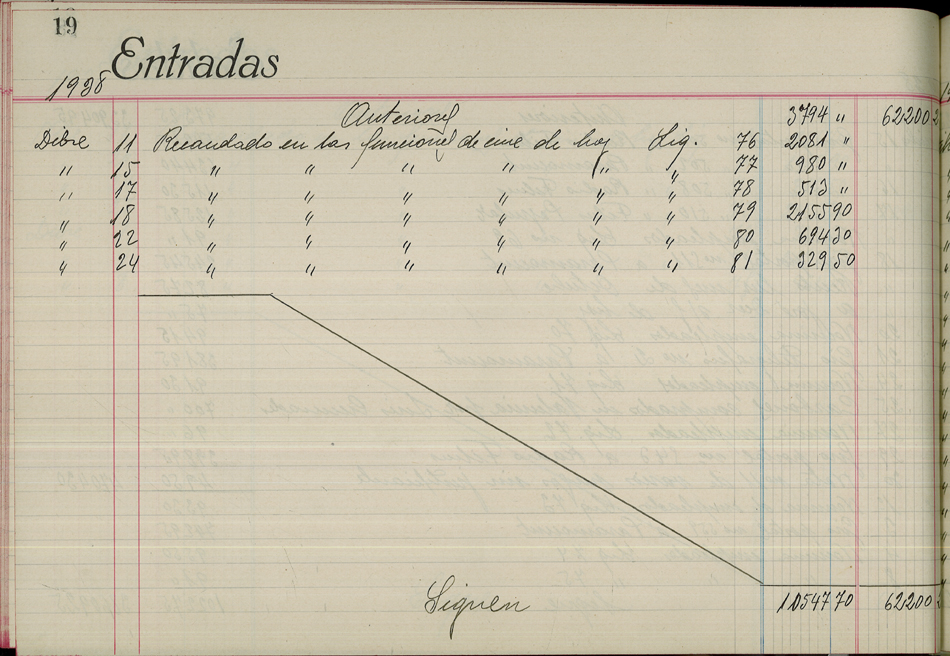 19
Entradas
1938
Anterior 3794 " 62200
Dibre 11 Recaudado en las funciones de cine de hoy Liq. 76 2081 "
" 15 " " " " " " 77 980 "
" 17 " " " " " " 78 513 "
" 18 " " " " " " 79 2155 90
" 22 " " " " " " 80 694 30
" 24 " " " " " " 81 329 50
Siguen 10547 70 62200